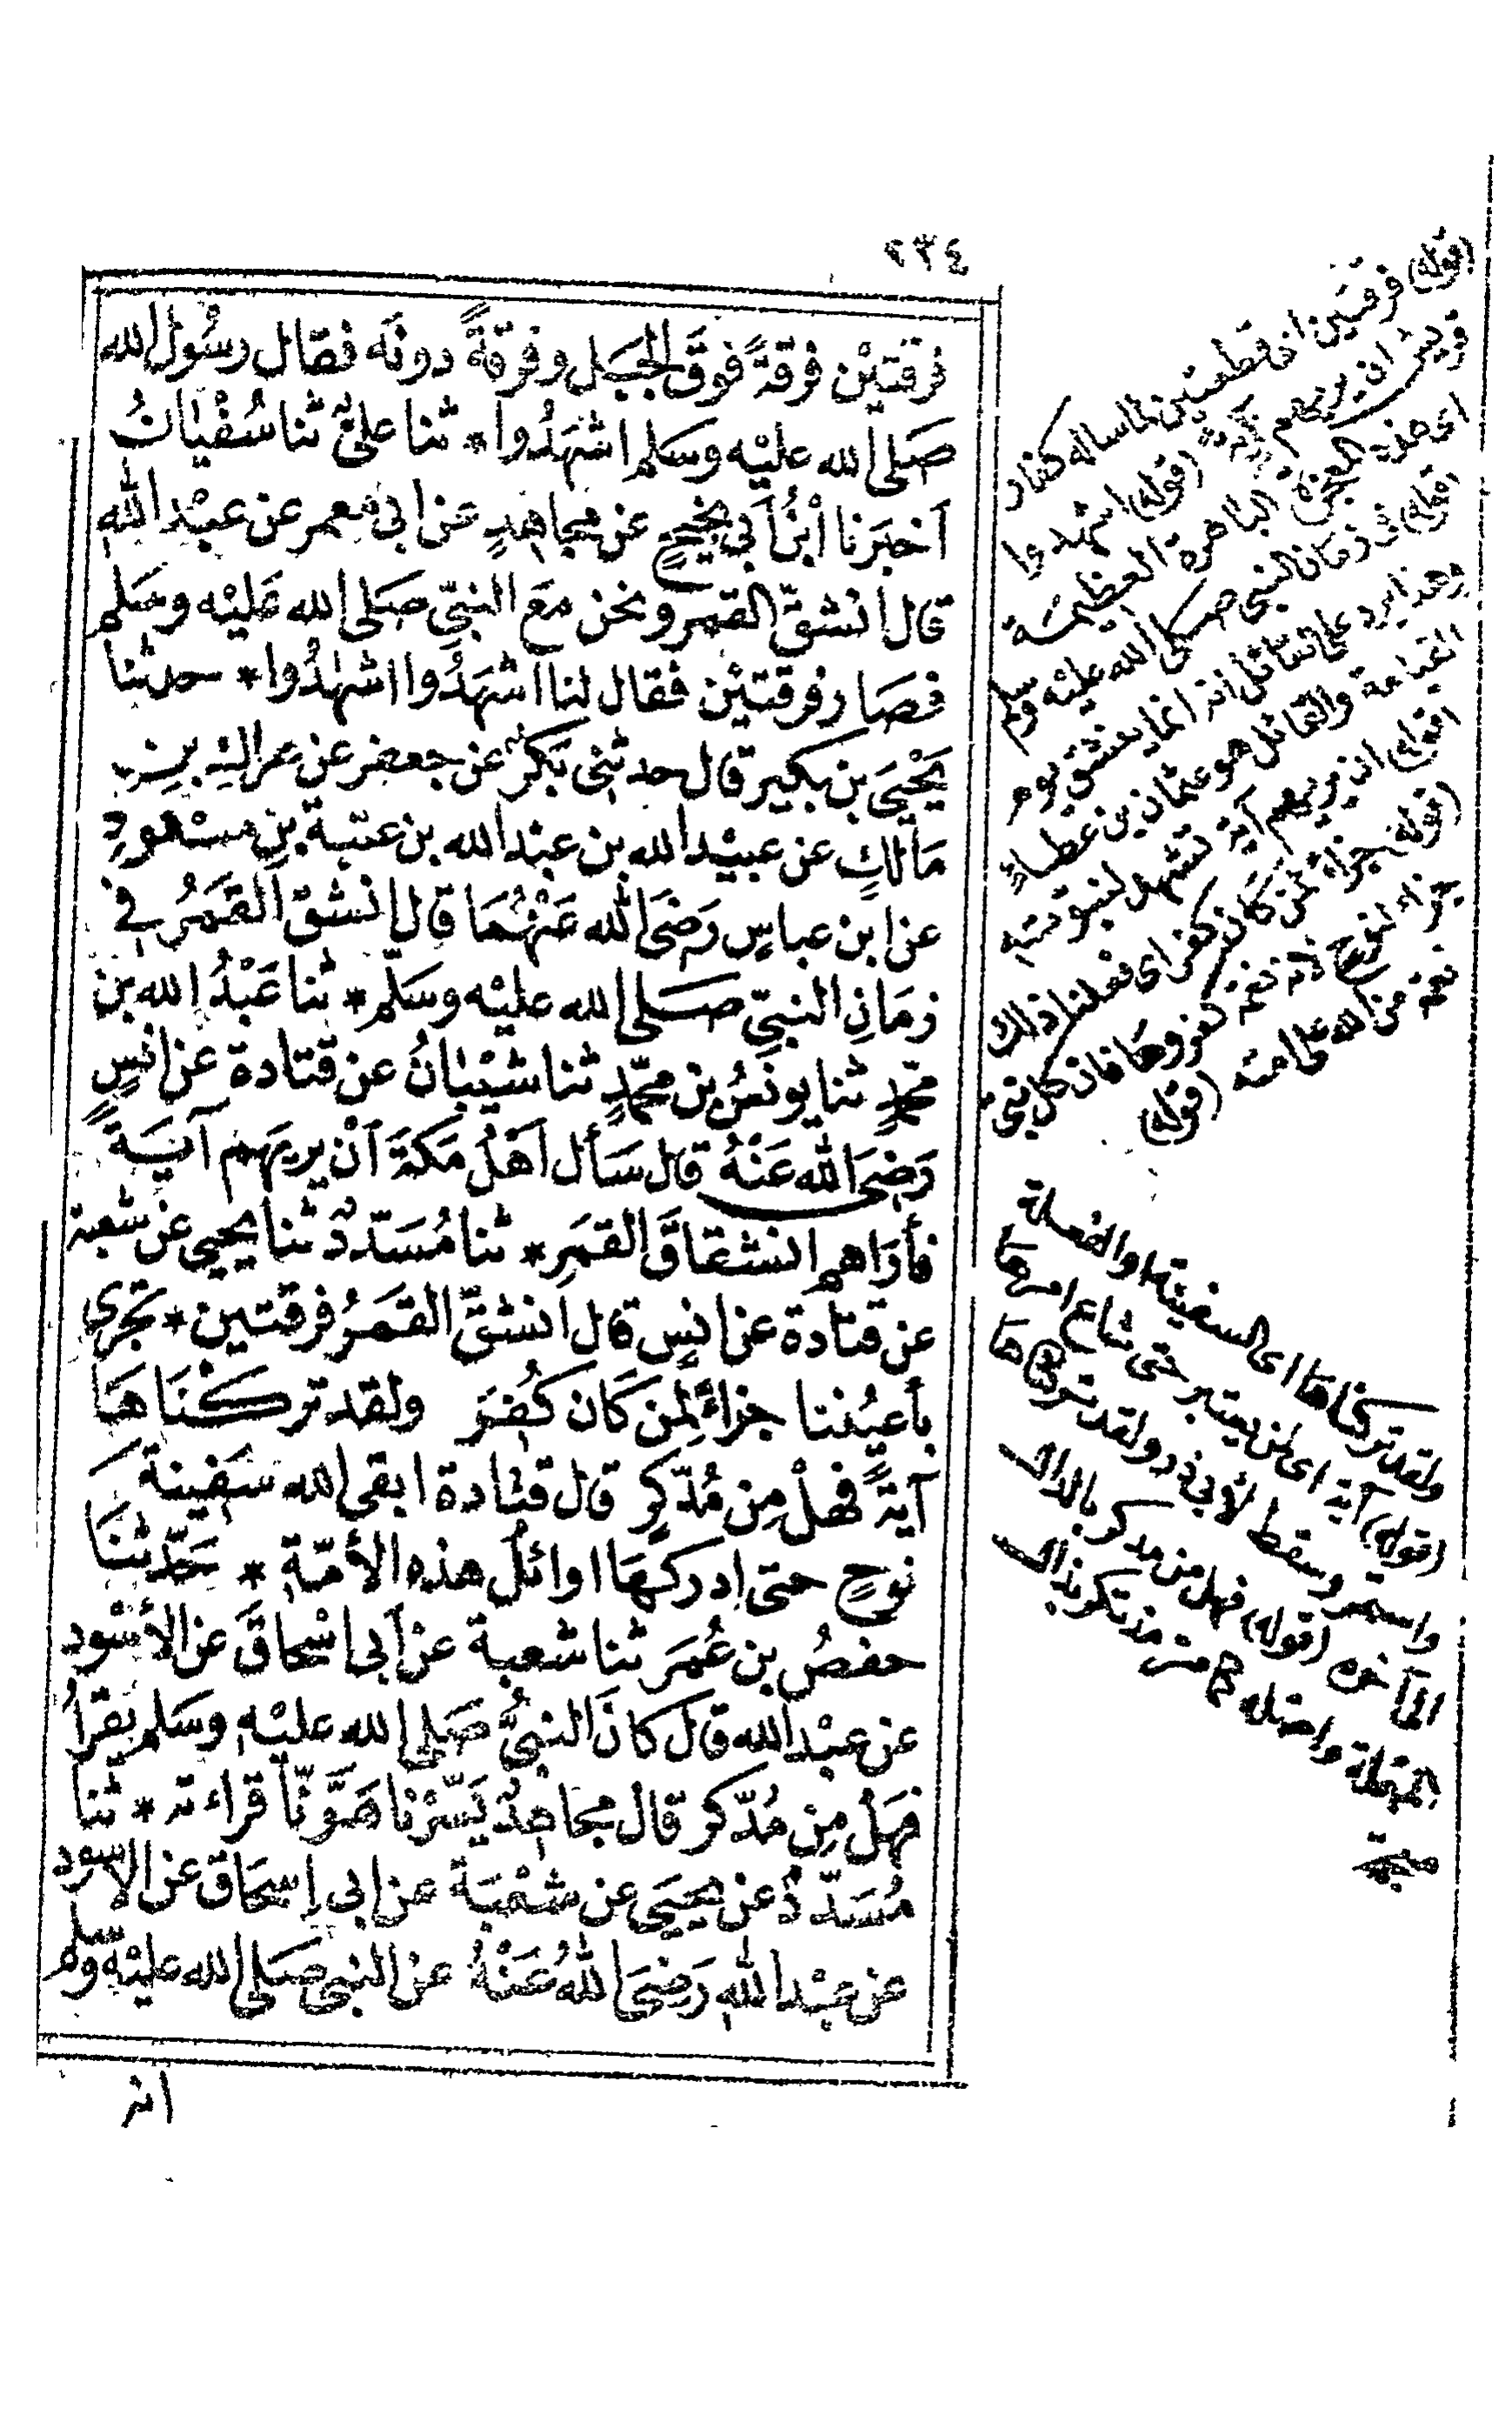 ٢٣٤
فرقتيْن فرقةً فوقَ الجبَل وفرقةً دونَه فقال رسُول الله
صَلى الله عليْه وسَلم اشهَدُوا * ثنا عليٌّ ثنا سُفْيٰانُ
اَخبَرَنا ابْنُ اَبي نجيحٍ عن مجاهدٍ عن ابى معمر عن عبْد اللهِ
قال انشقَّ القمَر ونحن مَعَ النبيّ صَلى الله عَليْه وسَلم
فصَار فرقتيْن فقال لنا اشهَدُوا اشهَدُوا * حدثنا
يَحْيَى بن بكير قال حدثنى بَكرٌ عن جعفر عن عراك بن
مَالكٍ عن عبيْد الله بن عبْد الله بن عتبة بن مسْعودٍ
عن ابن عباسٍ رَضىَ الله عَنْهُمَا قال انشقَ القمَرُ في
زمَانِ النبيّ صَلى الله عليْه وسَلّم * ثنا عَبْدُ الله بن
محمّدٍ ثنا يونسُ بن محمّدٍ ثنا شيْبٰانُ عن قتادة عن انسٍ
رَضىَ الله عَنْهُ قال سَأل اَهْلُ مَكةَ اَنْ يريَهم آيَةً
فأرَاهم انشقاقَ القمَرِ * ثنا مُسَدّدٌ ثنا يحيى عن شعبة
عن قتادة عن انسٍ قال انشقَّ القمَرُ فرقتين * تجرى
بأعيُننا جزاءً لمن كَان كُفِرَ ولقد تركنَاهَا
آيةً فهلْ مِن مُدّكرٍ قال قتادة ابقى الله سَفينةَ
نوحٍ حتى ادركهَا اوائلُ هذه الأمّة * حَدّثنَا
حفصُ بن عُمَرَ ثنا شعبة عن اَبى اسْحاقَ عن الأسْود
عن عبْد الله قال كانَ النبىُّ صَلى الله عليْه وسَلم يقرَأُ
فهَلْ مِن مُدّكر قال مجاهدٌ يَسّرْنا هَوَّنّا قراءته * ثنا
مُسَدّدٌ عن يحيَى عن شعْبَة عن ابى اِسحَاق عن الاسود
عن عبْد اللهِ رَضىَ اللهُ عَنْهُ عن النبى صَلى الله عليْه وسلم
انه
(قوله) فرقتين اى قطعتين لما ساله كفار
قريش ان يريهم آية (قوله) اشهدوا
اى هذه المعجزة الباهرة العظيمة
(قوله) فى زمان النبى صلى الله عليه وسلم
وهذا يرد على القائل انه انما ينشق يوم
القيامة والقائل هو عثمان بن عطاء
(قوله) ان يريهم آية تشهد لنبوته
(قوله) جزاء لمن كان كفر اى فعلنا ذلك
جزاء لنوح لانه نعمة كفروها فان كل نبى
نعمة من الله على امته (قوله)
ولقد تركناها اى السفينة او الفعلة
(قوله) آية اى لمن يعتبر حتى شاع امرها
واستمر وسقط لأبى ذر ولقد تركناها
الى آخره (قوله) فهل من مدكر بالدال
المهملة واصله مذتكر بذال
معجمة